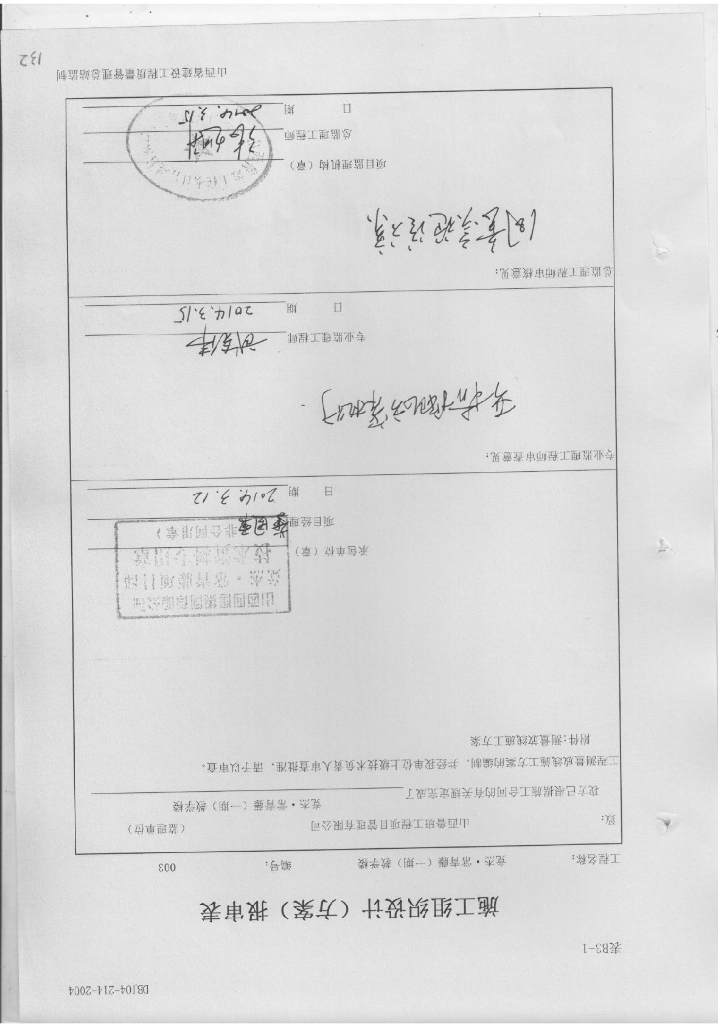 DBJ04-214-2004
表B3-1
施工组织设计（方案）报审表
工程名称： 竞杰·常青藤（一期）教学楼 编号： 003
致： 山西鲁班工程项目管理有限公司 （监理单位）
我方已根据施工合同的有关规定完成了 竞杰·常青藤（一期）教学楼
工程测量放线施工方案的编制，并经我单位上级技术负责人审查批准，请予以审查。
附件：测量放线施工方案
承包单位（章）
项目经理
日 期 2014.3.12
专业监理工程师审查意见：
专业监理工程师
日 期 2014.3.15
总监理工程师审核意见：
同意实施该方案
项目监理机构（章）
总监理工程师
日 期 2014.3.15
山西省建设工程质量管理总站监制
132